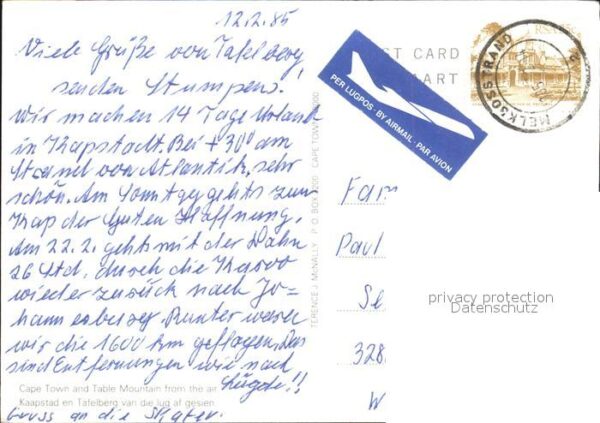 12.2.85
Viele Grüße von Tafelberg
senden Stumpens!
Wir machen 14 Tage Urlaub
in Kapstadt. Bei + 30° am
Strand vom Atlantik, sehr
schön. Am Sonntag gehts zum
Kap der Guten Hoffnung.
Am 22.2. geht mit der Bahn
26 Std. durch die Karoo
wieder zurück nach Jo-
hannesburg. Runter waren
wir die 1600 km geflogen. Das
sind Entfernungen wie nach
Lügde!!
Gruss an die Skater.
Cape Town and Table Mountain from the air
Kaapstad en Tafelberg van die lug af gesien
TERENCE J. McNALLY P.O. BOX CAPE TOWN
POST CARD
PER LUGPOS · BY AIRMAIL · PAR AVION
RSA
MELKBOSSTRAND
Fam
Paul
Se
328
W
privacy protection
Datenschutz